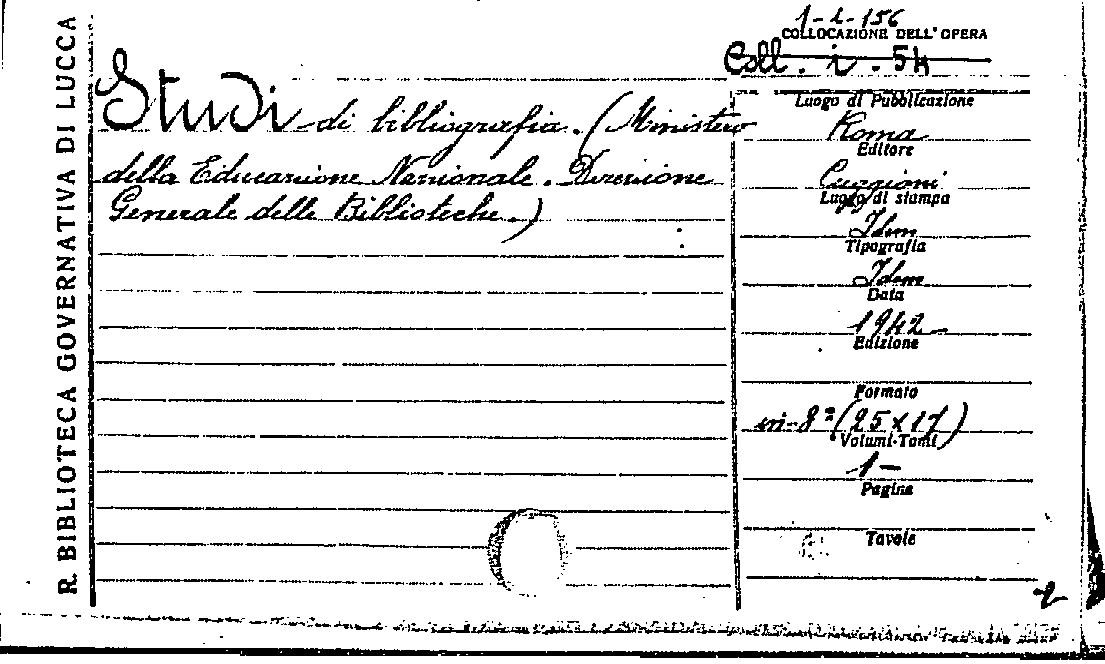 R. BIBLIOTECA GOVERNATIVA DI LUCCA
1-2-156
COLLOCAZIONE DELL'OPERA
Coll. i. 54
Studi di bibliografia. (Ministero
della Educazione Nazionale. Direzione
Generale delle Biblioteche.)
Luogo di Pubblicazione
Roma
Editore
Cuggioni
Luogo di stampa
Idem
Tipografia
Idem
Data
1942
Edizione
Formato
in-8º (25x17)
Volumi-Tomi
1-
Pagine
Tavole